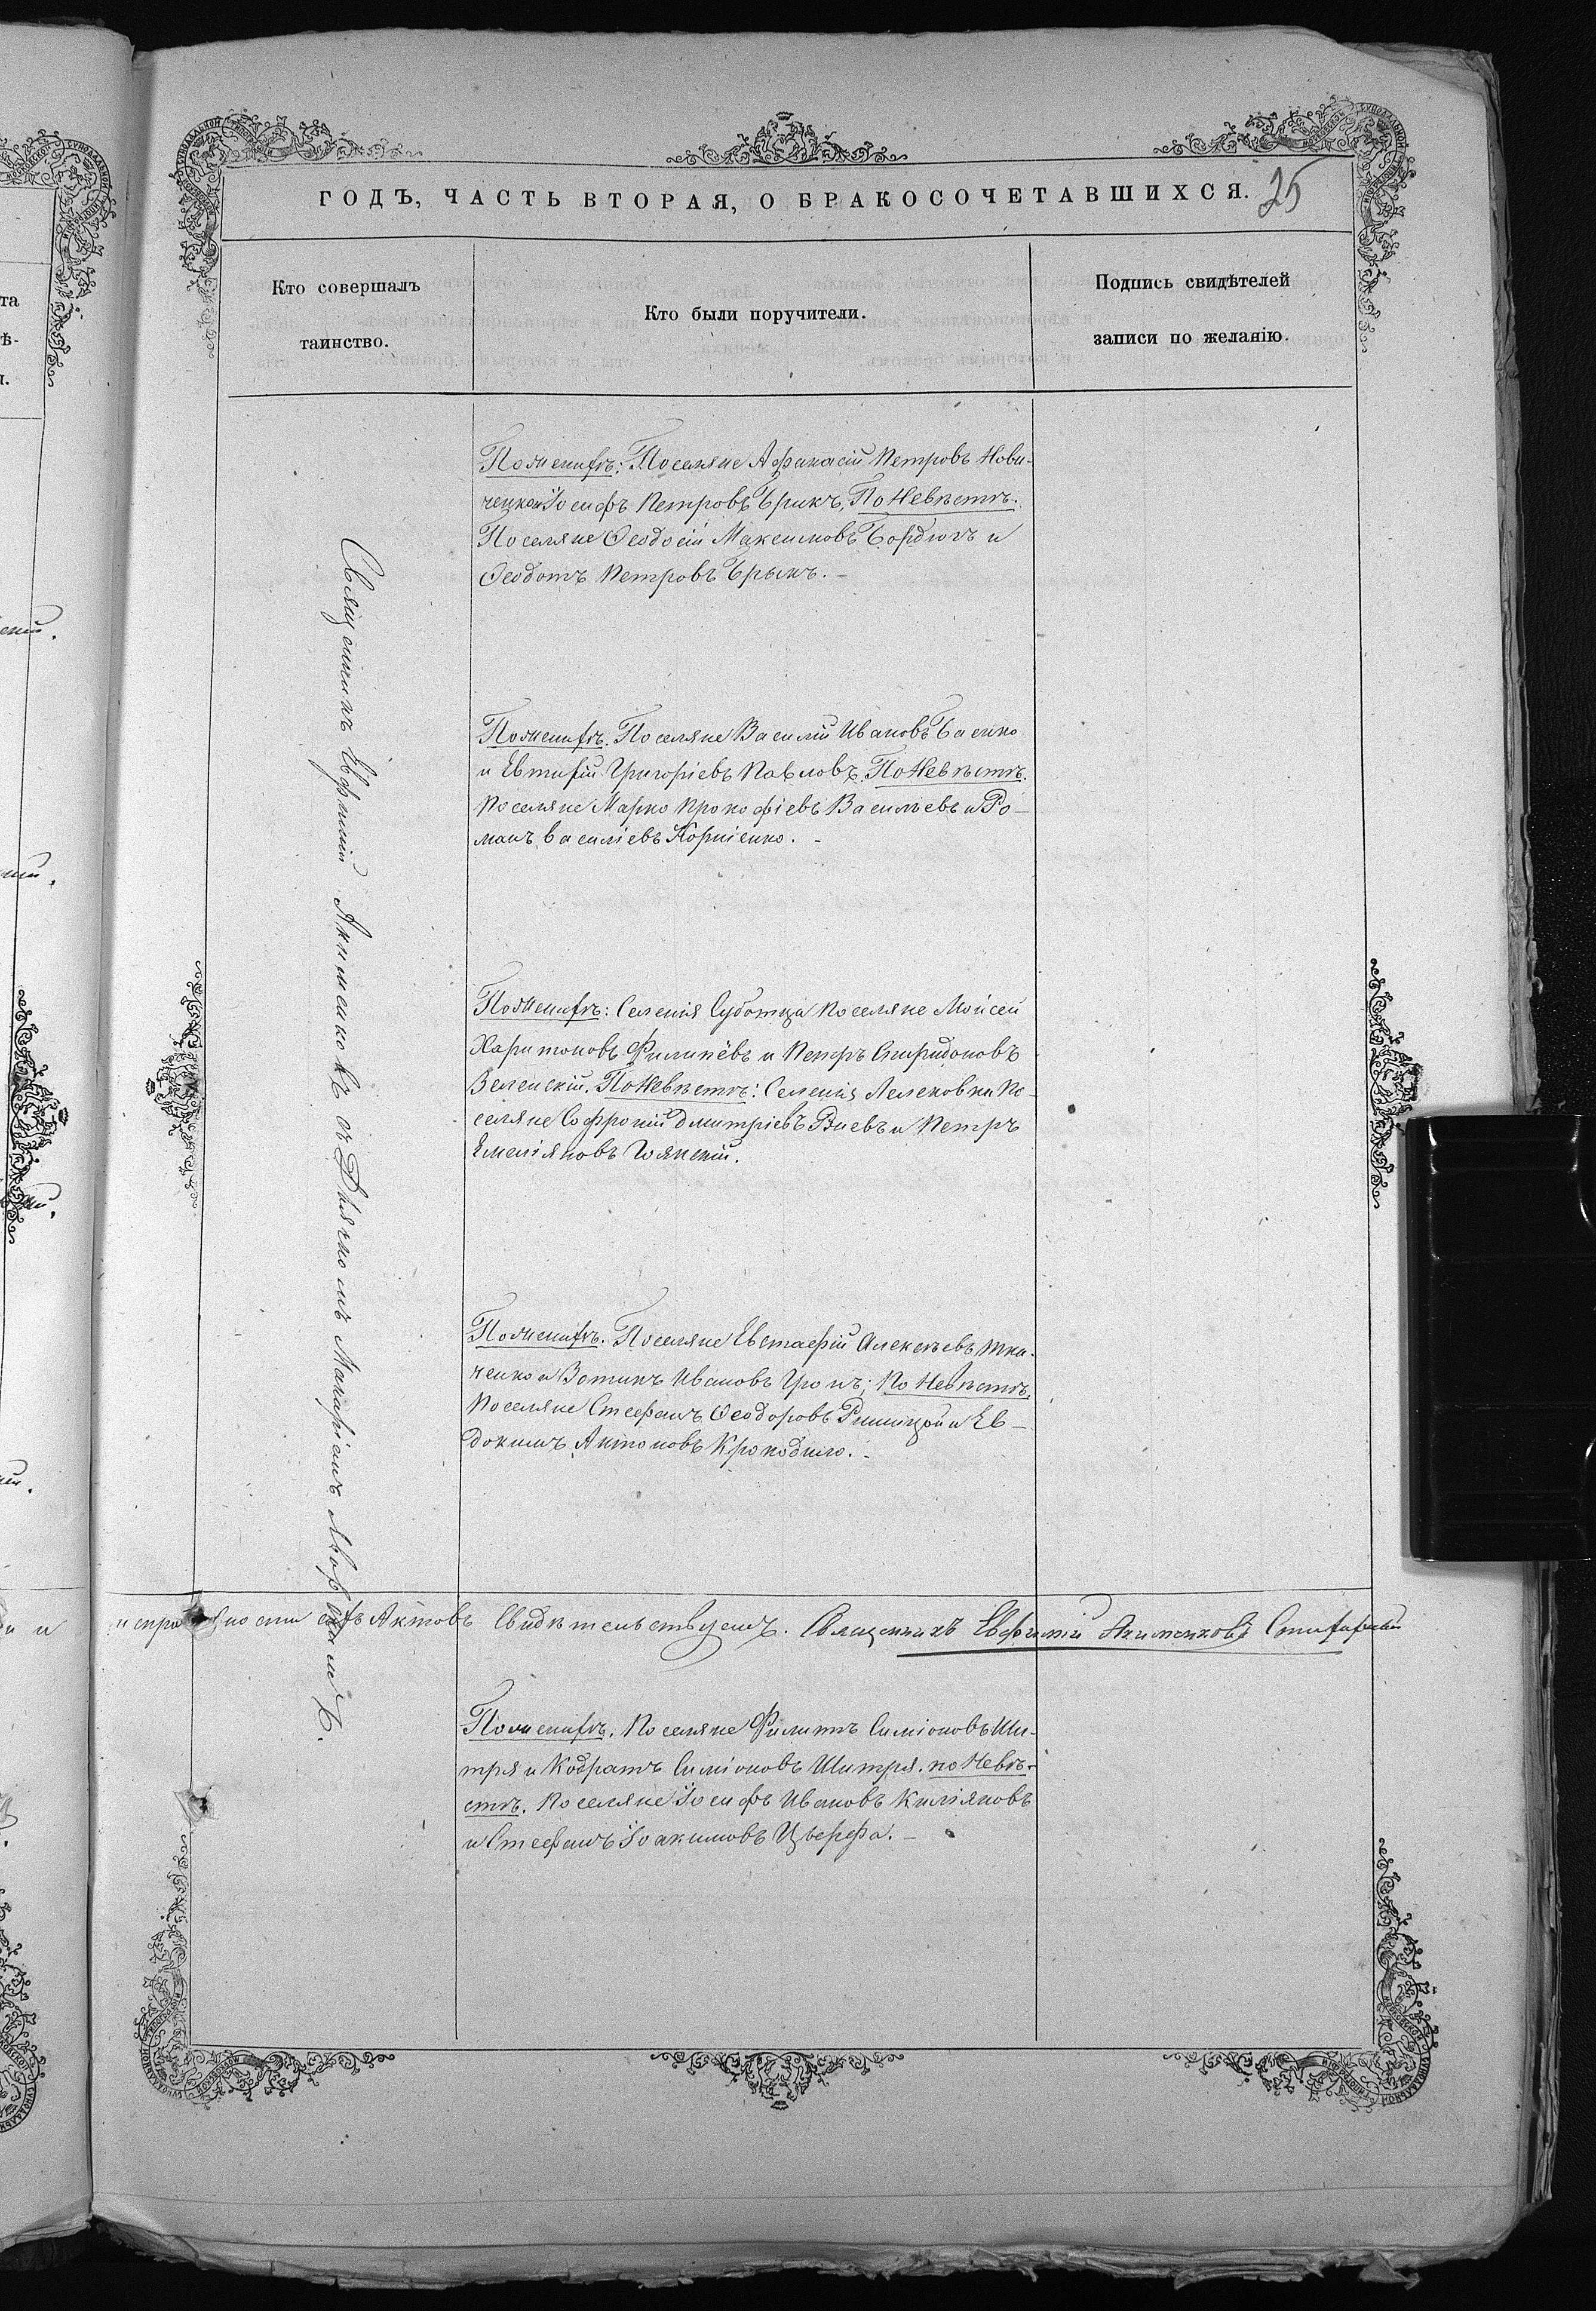 ГОДЪ, ЧАСТЬ ВТОРАЯ, О БРАКОСОЧЕТАВШИХСЯ. 25
Кто совершалъ
таинство.
Кто были поручители.
Подпись свидѣтелей
записи по желанію.
Священникъ Евфимій Акименковъ съ Дьячкомъ Макаріемъ
По Женихѣ: Поселяне Афанасій Петровъ Нови-
Іосифъ Петровъ Брикъ, По Невѣстѣ.
Поселяне Ѳеодосій Максимовъ Бордюгъ и
Ѳеодотъ Петровъ Брыкъ. –
По Женихѣ. Поселяне Василій Ивановъ Басенко
и Евтифій Григоріевъ Павловъ. По Невѣстѣ.
Поселяне Марко Прокофіевъ Васильевъ и Ро-
манъ Василіевъ Корніенко. –
По Женихѣ: Селенія Суботца Поселяне Мойсей
Харитоновъ Филипёвъ и Петръ Спиридоновъ
Зеленскій. По Невѣстѣ: Селенія Лелековки По-
селяне Софроній Дмитріевъ и Петръ
Емеліяновъ
По Женихѣ. Поселяне Евстафій Алексѣевъ Тка-
ченко и Зотикъ Ивановъ По Невѣстѣ,
Поселяне Стефанъ Ѳеодоровъ и Ев-
докимъ Антоновъ Крокодило. –
сихъ Актовъ Свидѣтельствуемъ. Священникъ Евфимій Акименковъ
По Женихѣ. Поселяне Филиппъ Симіоновъ Ши-
тря и Кодратъ Симіоновъ Шитря. по Невѣ-
стѣ. Поселяне Іосифъ Ивановъ Киліяновъ
и Стефанъ Іоакимовъ –